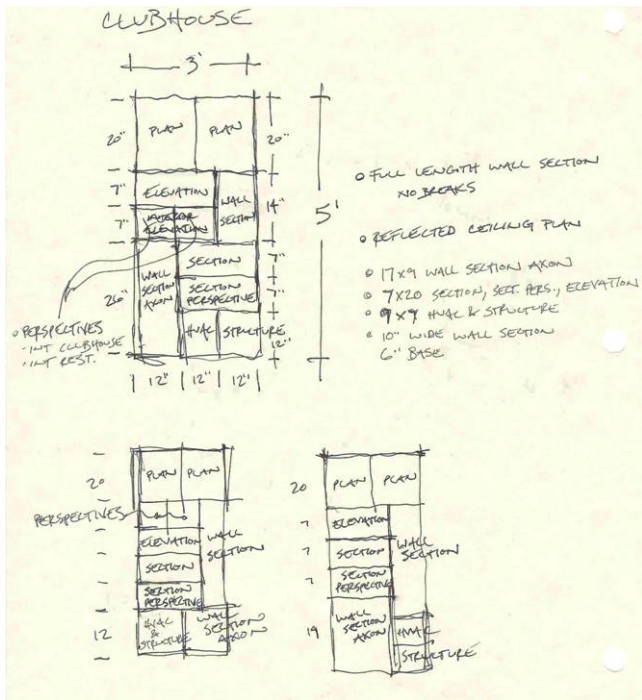 CLUBHOUSE
3'
20"
PLAN
PLAN
20"
7"
ELEVATION
WALL
SECTION
14"
7"
INTERIOR
ELEVATION
5'
26"
WALL
SECTION
AXON
SECTION
7"
SECTION
PERSPECTIVE
7"
HVAC
STRUCTURE
12"
12" 12" 12"
PERSPECTIVES
-INT CLUBHOUSE
-INT REST.
FULL LENGTH WALL SECTION
NO BREAKS
REFLECTED CEILING PLAN
17x9 WALL SECTION AXON
7x20 SECTION, SECT. PERS., ELEVATION
9x9 HVAC & STRUCTURE
10" WIDE WALL SECTION
6" BASE
20
PLAN
PLAN
PERSPECTIVES
ELEVATION
WALL
SECTION
SECTION
SECTION
PERSPECTIVE
12
HVAC
&
STRUCTURE
WALL
SECTION
AXON
20
PLAN
PLAN
7
ELEVATION
7
SECTION
WALL
SECTION
7
SECTION
PERSPECTIVE
19
WALL
SECTION
AXON
HVAC
STRUCTURE